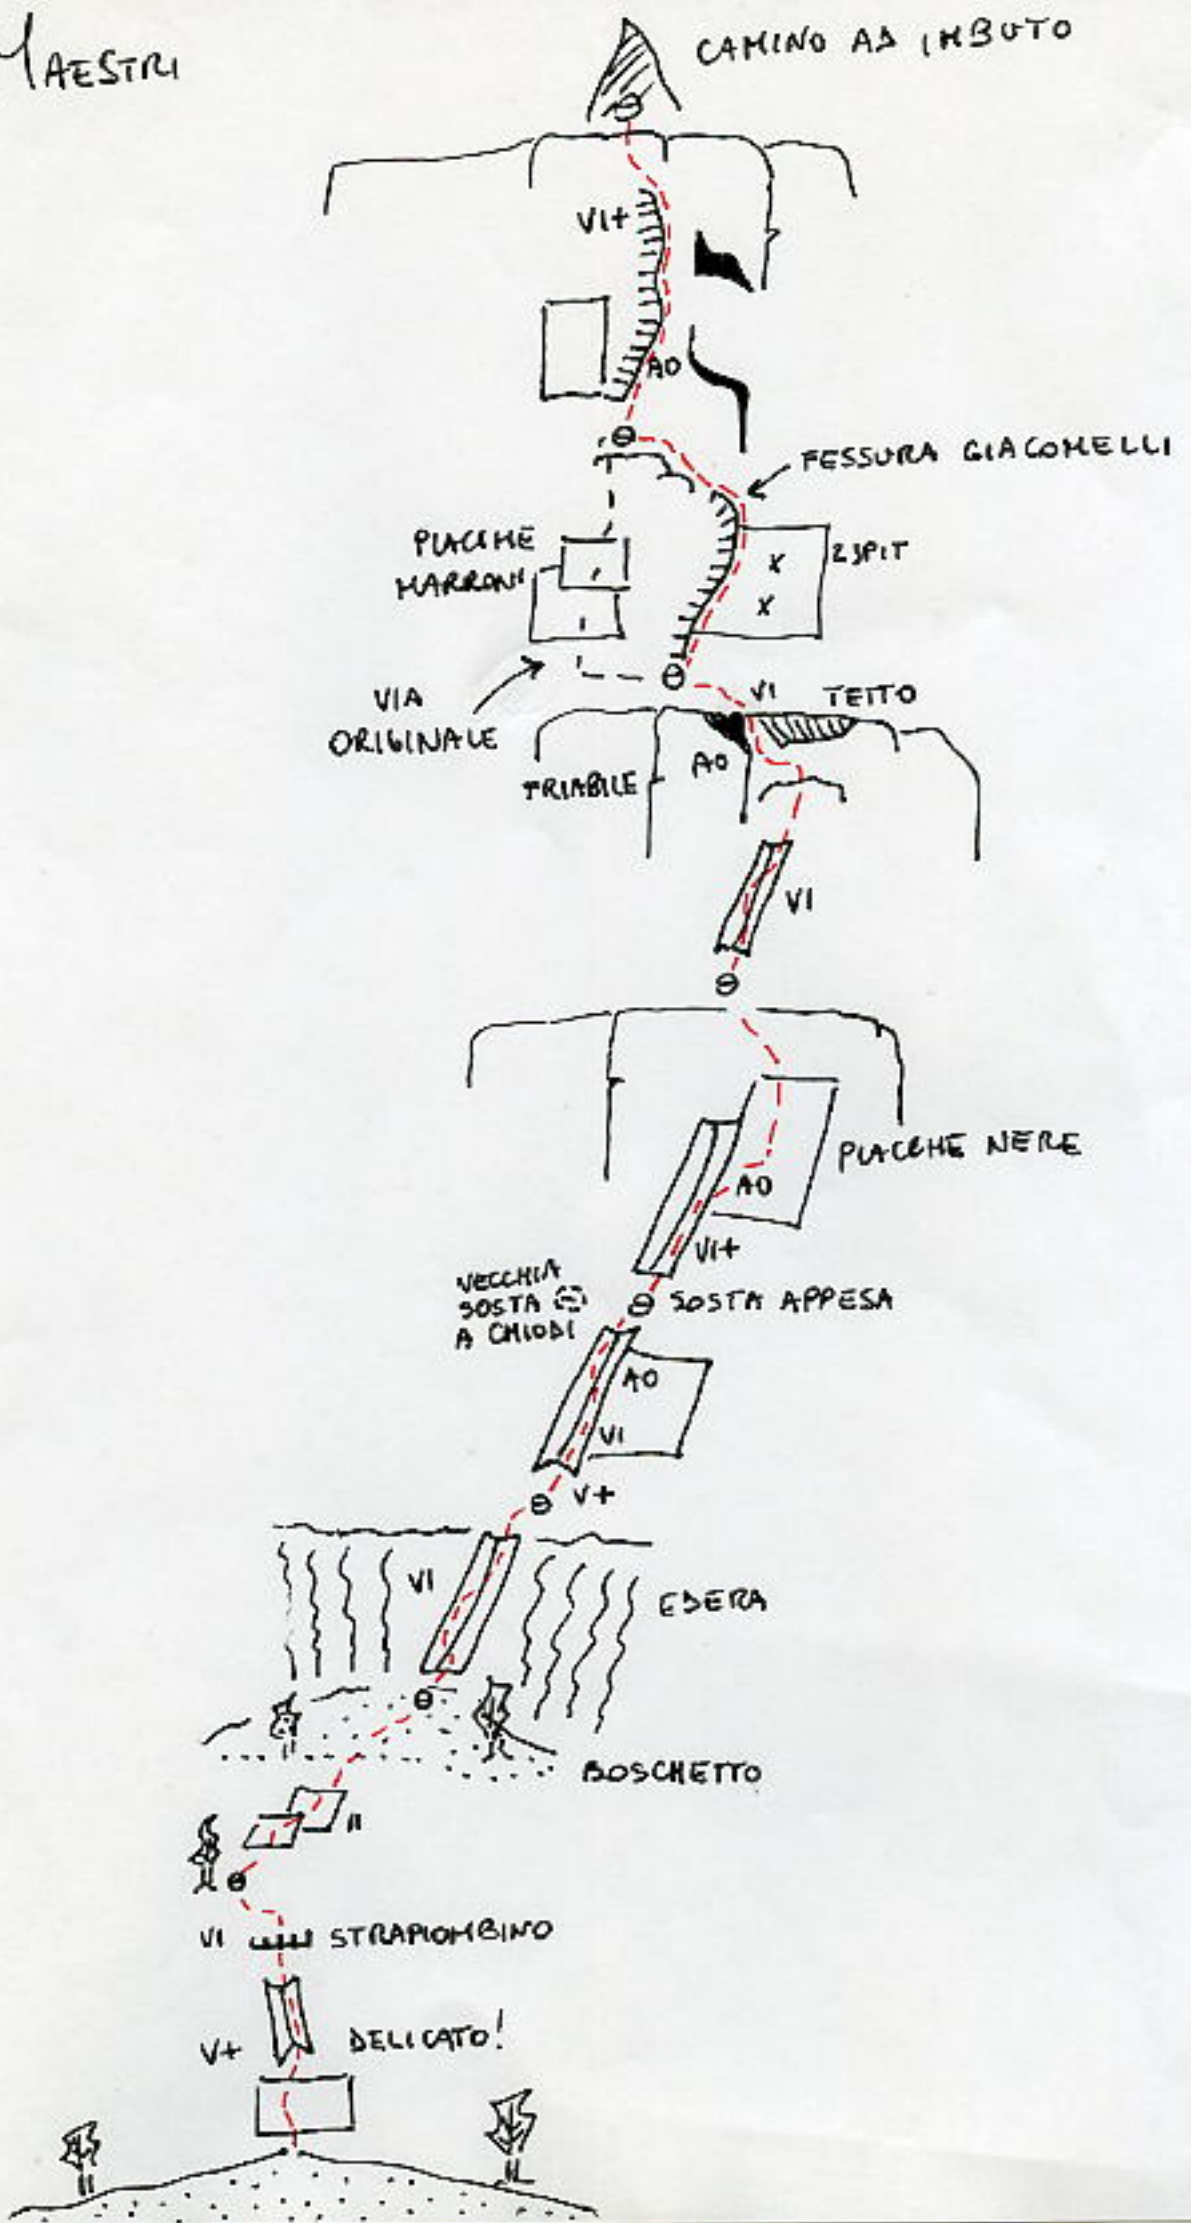 MAESTRI
CAMINO AD IMBUTO
VI+
A0
FESSURA GIACOMELLI
PLACCHE
MARRONI
2 SPIT
X
X
VIA
ORIGINALE
VI
TETTO
FRIABILE
A0
VI
PLACCHE NERE
A0
VI+
VECCHIA
SOSTA
A CHIODI
SOSTA APPESA
A0
VI
V+
VI
EDERA
BOSCHETTO
II
VI
STRAPIOMBINO
V+
DELICATO!